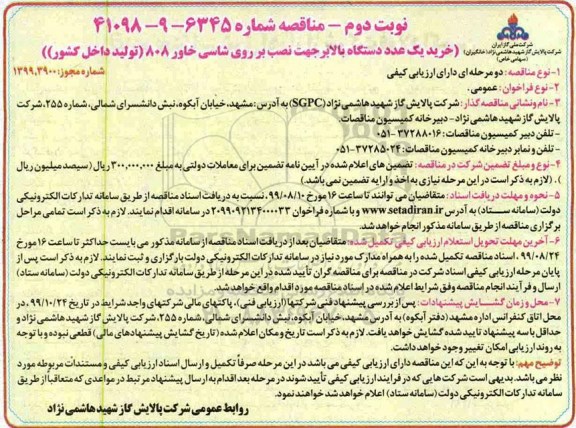 نوبت دوم - مناقصه شماره ۶۳۴۵-۹-۴۱۰۹۸
(خرید یک عدد دستگاه بالابر جهت نصب بر روی شاسی خاور ۸۰۸ (تولید داخل کشور))
شرکت ملی گاز ایران
شرکت پالایش گاز شهید هاشمی نژاد (خانگیران)
(سهامی خاص)
شماره مجوز: ۱۳۹۹.۳۹۰۰
۱- نوع مناقصه: دو مرحله ای دارای ارزیابی کیفی
۲- نوع فراخوان: عمومی.
۳- نام ونشانی مناقصه گذار: شرکت پالایش گاز شهید هاشمی نژاد (SGPC) به آدرس: مشهد، خیابان آبکوه، نبش دانشسرای شمالی، شماره ۲۵۵، شرکت
پالایش گاز شهید هاشمی نژاد - دبیرخانه کمیسیون مناقصات.
- تلفن دبیر کمیسیون مناقصات: ۳۷۲۸۸۰۱۶-۰۵۱
- تلفن و نمابر دبیرخانه کمیسیون مناقصات: ۳۷۲۸۵۰۲۴-۰۵۱
۴- نوع و مبلغ تضمین شرکت در مناقصه: تضمین های اعلام شده در آیین نامه تضمین برای معاملات دولتی به مبلغ ۳۰۰,۰۰۰,۰۰۰ ریال (سیصد میلیون ریال
). (لازم به ذکر است در این مرحله نیازی به اخذ و ارایه تضمین نمی باشد)
۵- نحوه و مهلت دریافت اسناد: متقاضیان می توانند تا ساعت ۱۶ مورخ ۹۹/۰۸/۱۰، نسبت به دریافت اسناد مناقصه از طریق سامانه تدارکات الکترونیکی
دولت (سامانه ستاد) به آدرس www.setadiran.ir و با شماره فراخوان ۲۰۹۹۰۹۲۱۳۴۰۰۰۰۳۳ در سامانه اقدام نمایند. لازم به ذکر است تمامی مراحل
برگزاری مناقصه از طریق سامانه مذکور انجام خواهد شد.
۶- آخرین مهلت تحویل استعلام ارزیابی کیفی تکمیل شده: متقاضیان بعد از دریافت اسناد مناقصه از سامانه مذکور می بایست حداکثر تا ساعت ۱۶ مورخ
۹۹/۰۸/۲۴، اسناد مناقصه تکمیل شده را به همراه مدارک مورد نیاز در سامانه تدارکات الکترونیکی دولت بارگزاری و ثبت نمایند. لازم به ذکر است پس از
پایان مرحله ارزیابی کیفی اسناد شرکت در مناقصه برای مناقصه گران تأیید شده در این مرحله از طریق سامانه تدارکات الکترونیکی دولت (سامانه ستاد)
ارسال و فرآیند انجام مناقصه وفق شرایط اعلام شده در اسناد مناقصه مورد اقدام واقع خواهد شد.
۷- محل و زمان گشایش پیشنهادات: پس از بررسی پیشنهادات فنی شرکتها (ارزیابی فنی)، پاکتهای مالی شرکتهای واجد شرایط در تاریخ ۹۹/۱۰/۲۴، در
محل اتاق کنفرانس اداره مشهد (دفتر آبکوه) به آدرس: مشهد، خیابان آبکوه، نبش دانشسرای شمالی، شماره ۲۵۵، شرکت پالایش گاز شهید هاشمی نژاد و
حداقل با سه پیشنهاد تایید شده گشایش خواهد یافت. لازم به ذکر است تاریخ و مکان اعلام شده (تاریخ گشایش پیشنهادهای مالی) قطعی نبوده و با توجه
به روند ارزیابی امکان تغییر وجود خواهد داشت.
توضیح مهم: با توجه به این که این مناقصه دارای ارزیابی کیفی می باشد در این مرحله صرفاً تکمیل و ارسال اسناد ارزیابی کیفی و مستندات مربوطه مورد
نظر می باشد. بدیهی است شرکت هایی که در فرایند ارزیابی کیفی تأیید شوند در مرحله بعد اقدام به ارسال پیشنهاد مرتبط در مواعدی که متعاقباً از طریق
سامانه تدارکات الکترونیکی دولت (سامانه ستاد) اعلام خواهد شد خواهند نمود.
روابط عمومی شرکت پالایش گاز شهید هاشمی نژاد